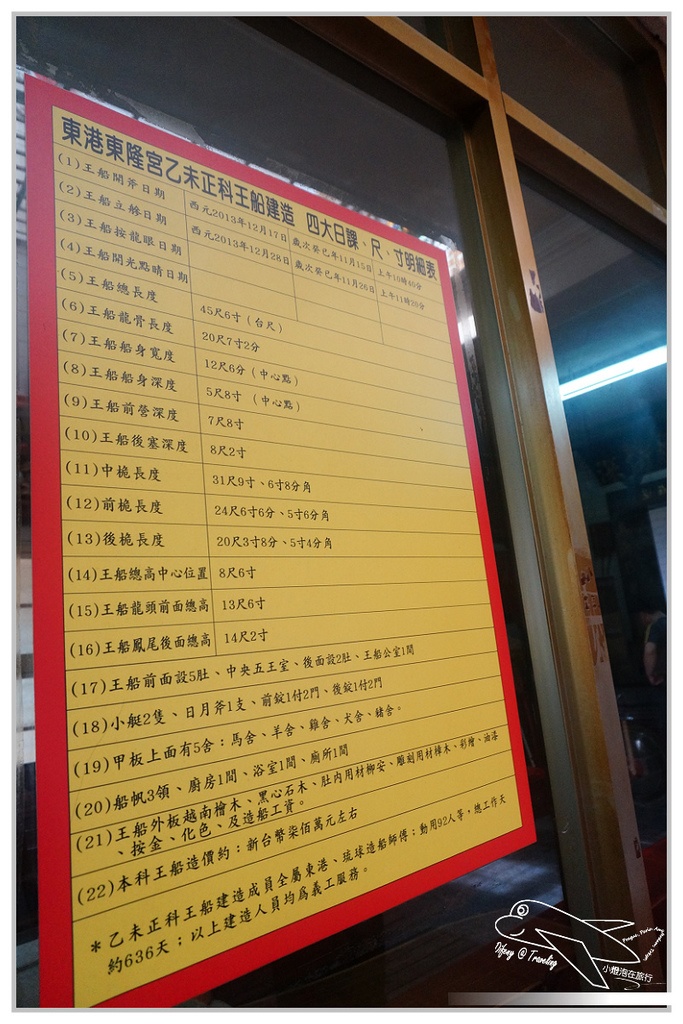 東港東隆宮乙未正科王船建造 四大日課、尺、寸明細表
(1)王船開斧日期 西元2013年12月17日 歲次癸巳年11月15日 上午10時40分
(2)王船立艌日期 西元2013年12月28日 歲次癸巳年11月26日 上午11時20分
(3)王船按龍眼日期
(4)王船開光點睛日期
(5)王船總長度 45尺6寸(台尺)
(6)王船龍骨長度 20尺7寸2分
(7)王船船身寬度 12尺6分(中心點)
(8)王船船身深度 5尺8寸 (中心點)
(9)王船前營深度 7尺8寸
(10)王船後塞深度 8尺2寸
(11)中桅長度 31尺9寸、6寸8分角
(12)前桅長度 24尺6寸6分、5寸6分角
(13)後桅長度 20尺3寸8分、5寸4分角
(14)王船總高中心位置 8尺6寸
(15)王船龍頭前面總高 13尺6寸
(16)王船鳳尾後面總高 14尺2寸
(17)王船前面設5肚、中央五王室、後面設2肚、王船公室1間
(18)小艇2隻、日月斧1支、前錠1付2門、後錠1付2門
(19)甲板上面有5舍：馬舍、羊舍、雞舍、犬舍、豬舍。
(20)船帆3領、廚房1間、浴室1間、廁所1間
(21)王船外板越南檜木、黑心石木、肚內用材柳安、雕刻用材樟木、彩繪、油漆
、按金、化色、及造船工資。
(22)本科王船造價約：新台幣柒佰萬元左右
*乙未正科王船建造成員全屬東港、琉球造船師傅；動用92人等，總工作天
約636天；以上建造人員均為義工服務。
Difeny @ Traveling
小燈泡在旅行